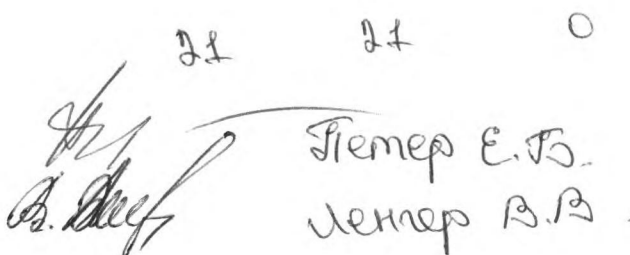 21 21 0
Петер Е.Б.
Ленгер В.В.